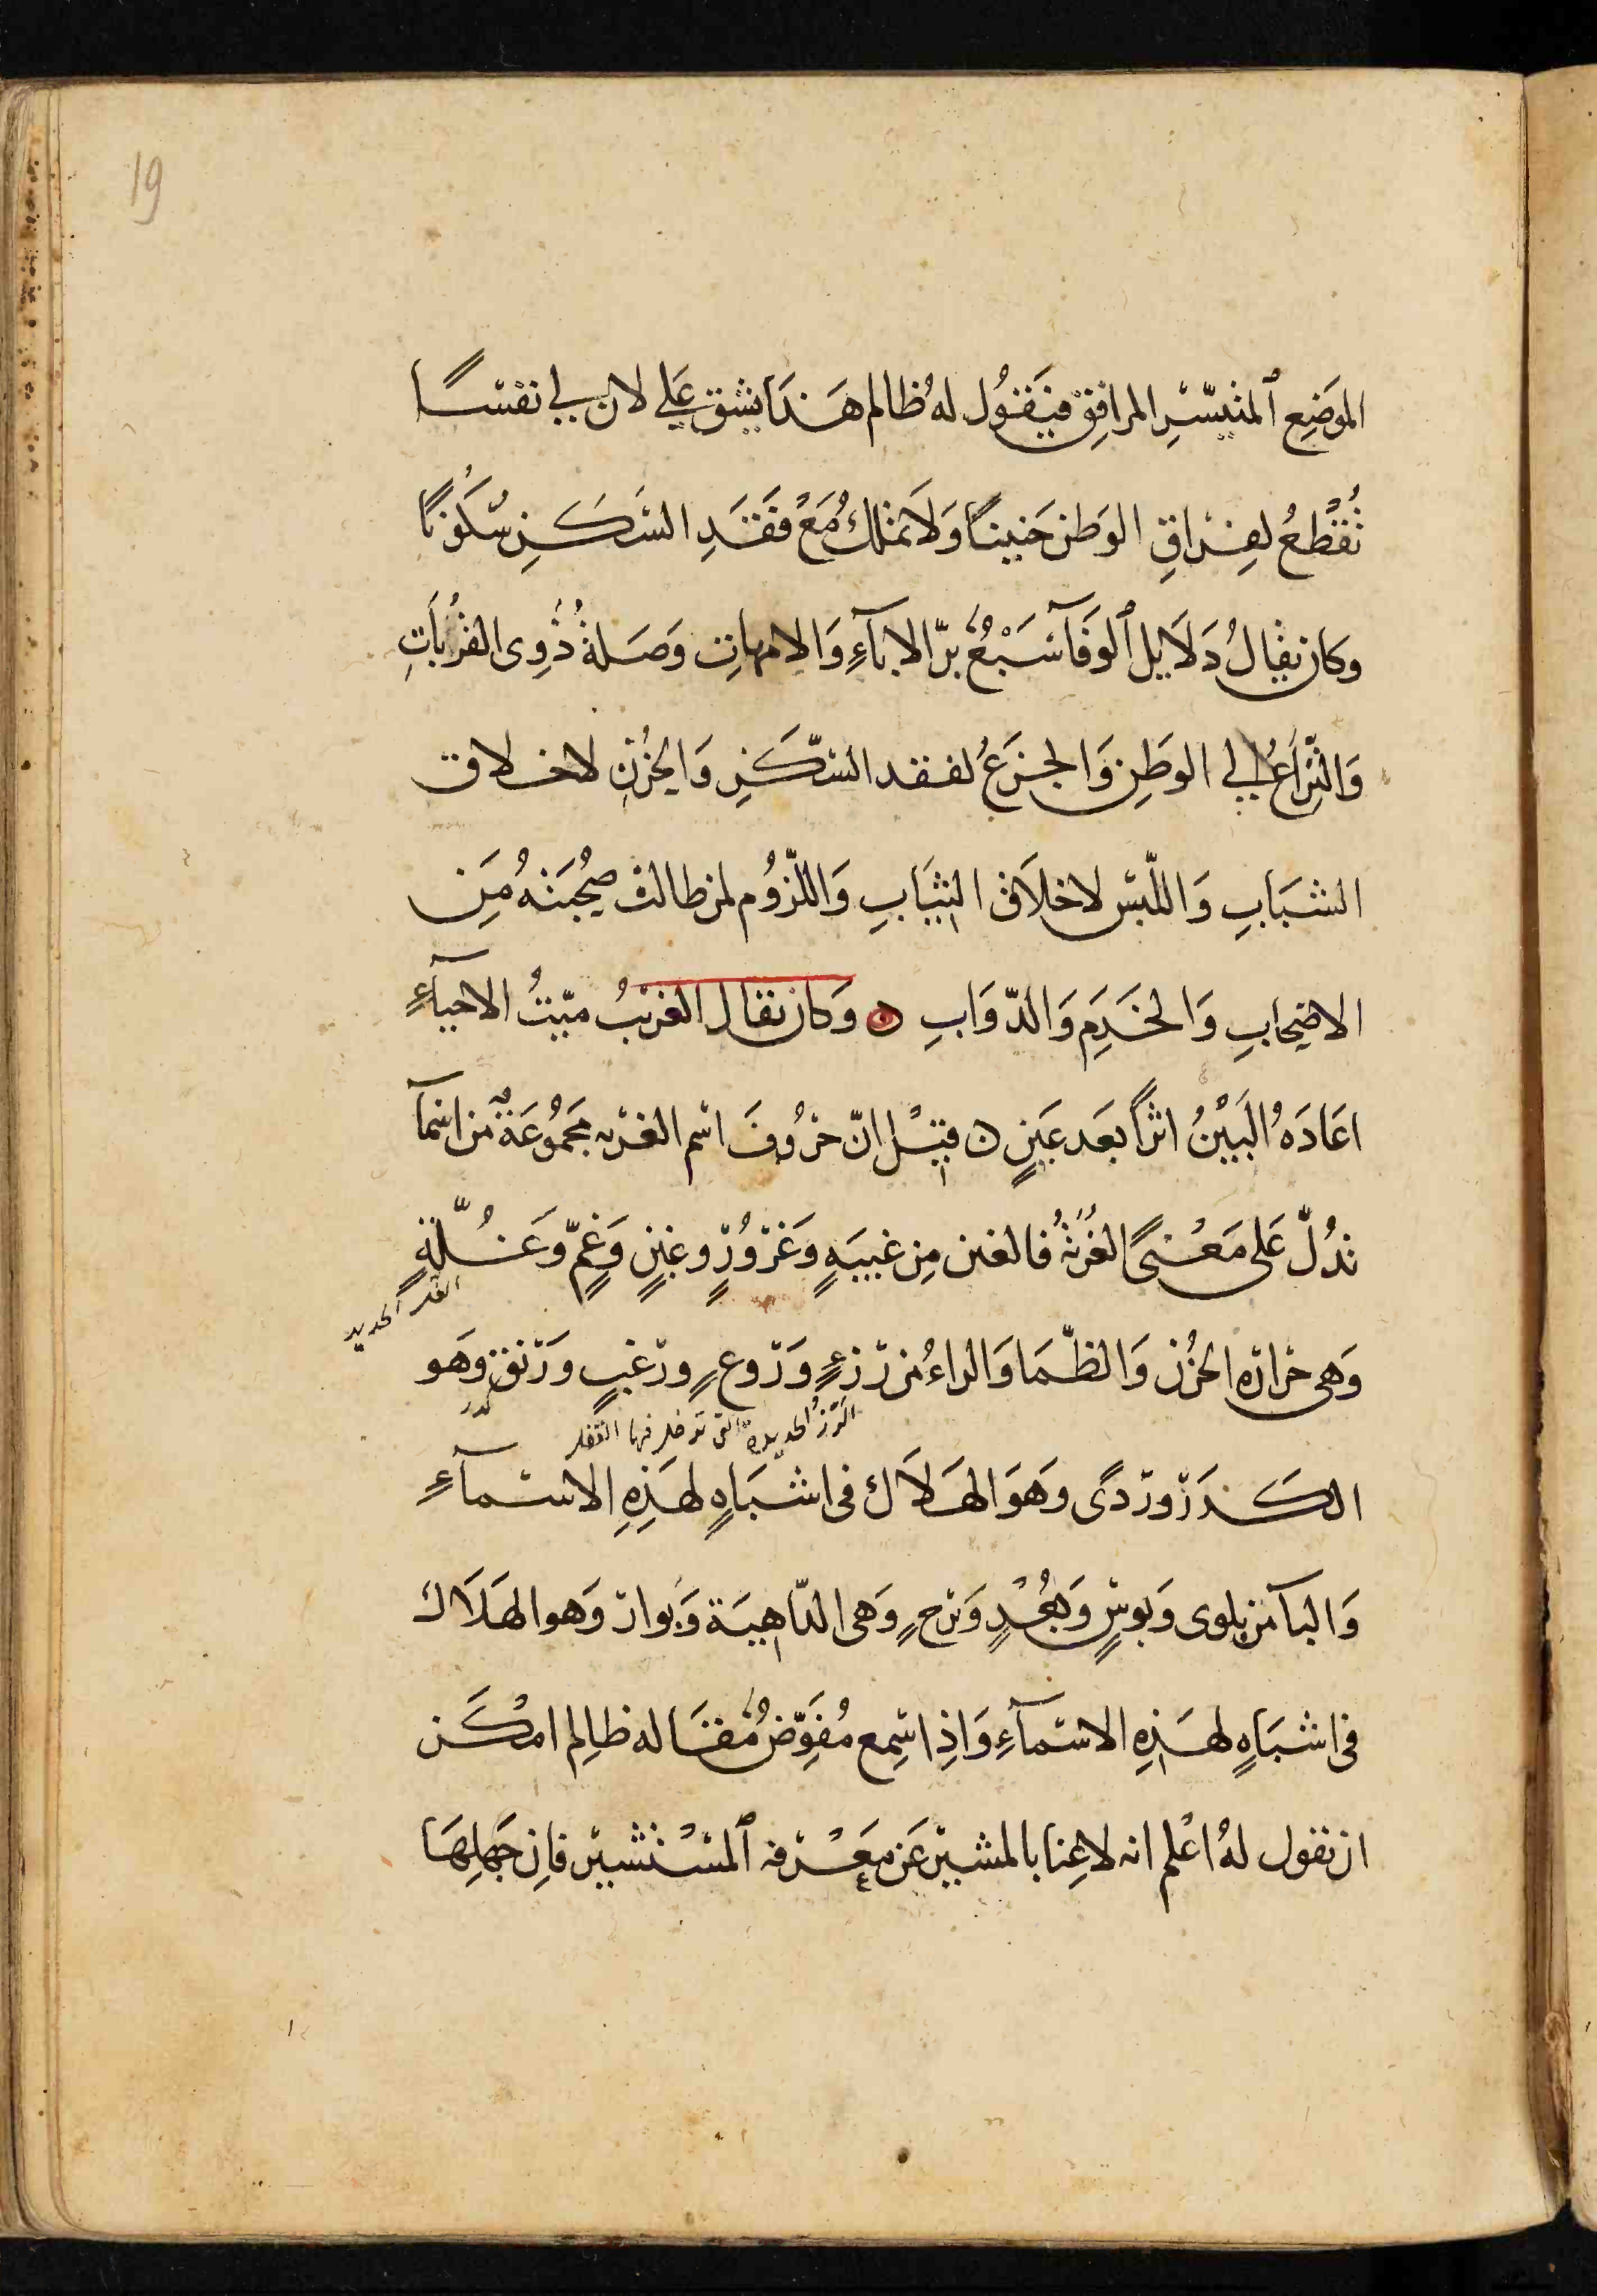 19
الموَضِع ٱلمتيسّرِ المرافِق فيَقوُل لهُ ظالم هَذا يشق عَلي لان لي نفسًا
تُقطعُ لفِراقِ الوَطن حَنينًا وَلا تملكُ مَعَ فَقدِ السَكَنِ سُكونًا
وكان يقالُ دَلايل ٱلوَفآ سَبْعٌ برّ الابآءِ وَالامهاتِ وَصَلة ذَوِى القُرَباتِ
وَالنِّزاعُ الي الوَطِن وَالجزعُ لفقد السّكَنِ وَالحُزن لاخلاق
الشبَابِ وَاللّبْس لاخلاَق الثيَابِ وَاللّزوُم لمن طالت صحُبَتهُ مَن
الاصحابِ وَالخدَمِ وَالدّوَابِ ن وَكان يقال الغريبُ ميّتُ الاحيآءِ
اعَادَهُ البَيْنُ اثرًا بعَد عَينٍ ن قيْل انّ حرُوفَ اسْم الغربه مجمُوعَةٌ من اسمآ
تدُلّ عَلى مَعْنىً الغُربةُ فالغين مِن غيبَةٍ وَغرُورٍ وغبنٍ وَغمٍّ وَغُلّةٍ
وَهى حَرارَه الحُزن وَالظّمَا وَالراءُ من رُزءٍ وَرَوعٍ ورغبٍ ورَنق وهَو
كدر
الرز الحديدة التى تدخل فيها القفل
الكدَرَ ورَدًى وهَوَ الهَلاَك فى اشبَاهٍ لهَذِهِ الاسمآءِ
وَالبآ من بلوى وَبوسٍ وَبُعْدٍ وَبَرحٍ وَهى الدّاهِيَة وَبَوار وَهو الهَلاَك
فى اشبَاهٍ لهَذِهِ الاسمآءِ وَاذِا سَمِع مُفَوّضٌ مُقَاله ظالِم امكَن
ان يقول لهُ اعْلم انه لا غِنا بالمشير عَن مَعْرفه ٱلمسْتشير فاِن جَهلهَا